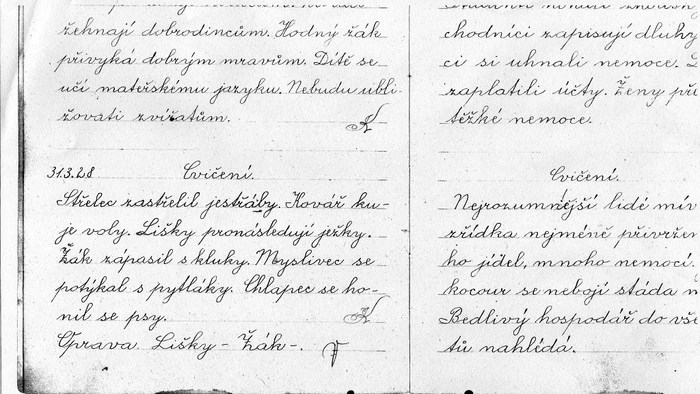 žehnají dobrodincům. Hodný žák
přivyká dobrým mravům. Dítě se
učí mateřskému jazyku. Nebudu ubli-
žovati zvířatům.
31.3.28 Cvičení.
Střelec zastřelil jestřáby. Kovář ku-
je voly. Lišky pronásledují ježky.
Žák zápasil s kluky. Myslivec se
potýkal s pytláky. Chlapec se ho-
nil se psy.
Oprava. Lišky - Žák -.
chodníci zapisují dluhy
ci si uhnali nemoce.
zaplatili účty. Ženy
těžké nemoce.
Cvičení.
Nejrozumnější lidé
zřídka nejméně
ho jídel, mnoho nemocí.
kocour se nebojí stáda
Bedlivý hospodář do
tů nahlédá.